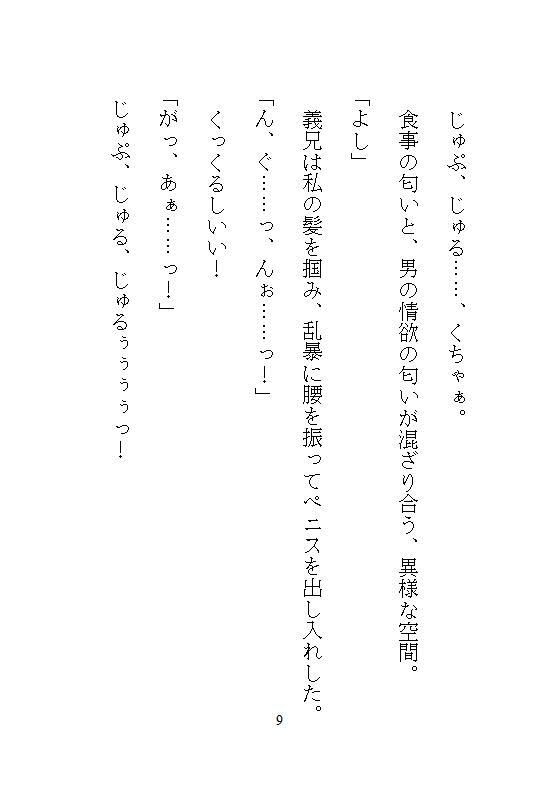 じゅぷ、じゅる……、くちゃぁ。
食事の匂いと、男の情欲の匂いが混ざり合う、異様な空間。
「よし」
義兄は私の髪を掴み、乱暴に腰を振ってペニスを出し入れした。
「ん、ぐ……っ、んぉ……っ！」
くっくるしいい！
「がっ、あぁ……っ！」
じゅぷ、じゅる、じゅるぅぅぅぅっ！
9